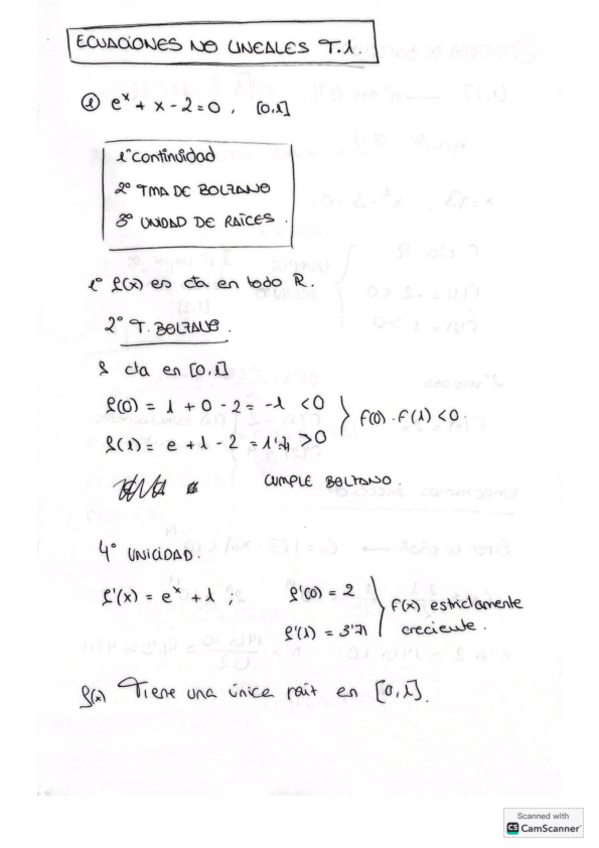 ECUACIONES NO LINEALES T.1.
① eˣ + x - 2 = 0, [0,1]
1º continuidad
2º TMA DE BOLZANO
3º UNIDAD DE RAÍCES.
1º f(x) es cta en todo R.
2º T. BOLZANO.
f cta en [0,1]
f(0) = 1 + 0 - 2 = -1 < 0
f(1) = e + 1 - 2 = 1'71 > 0
f(0) · f(1) < 0.
CUMPLE BOLZANO.
4º UNICIDAD.
f'(x) = eˣ + 1 ; f'(0) = 2
f'(1) = 3'71
f(x) estrictamente
creciente.
f(x) Tiene una única raíz en [0,1].
Scanned with
CS CamScanner